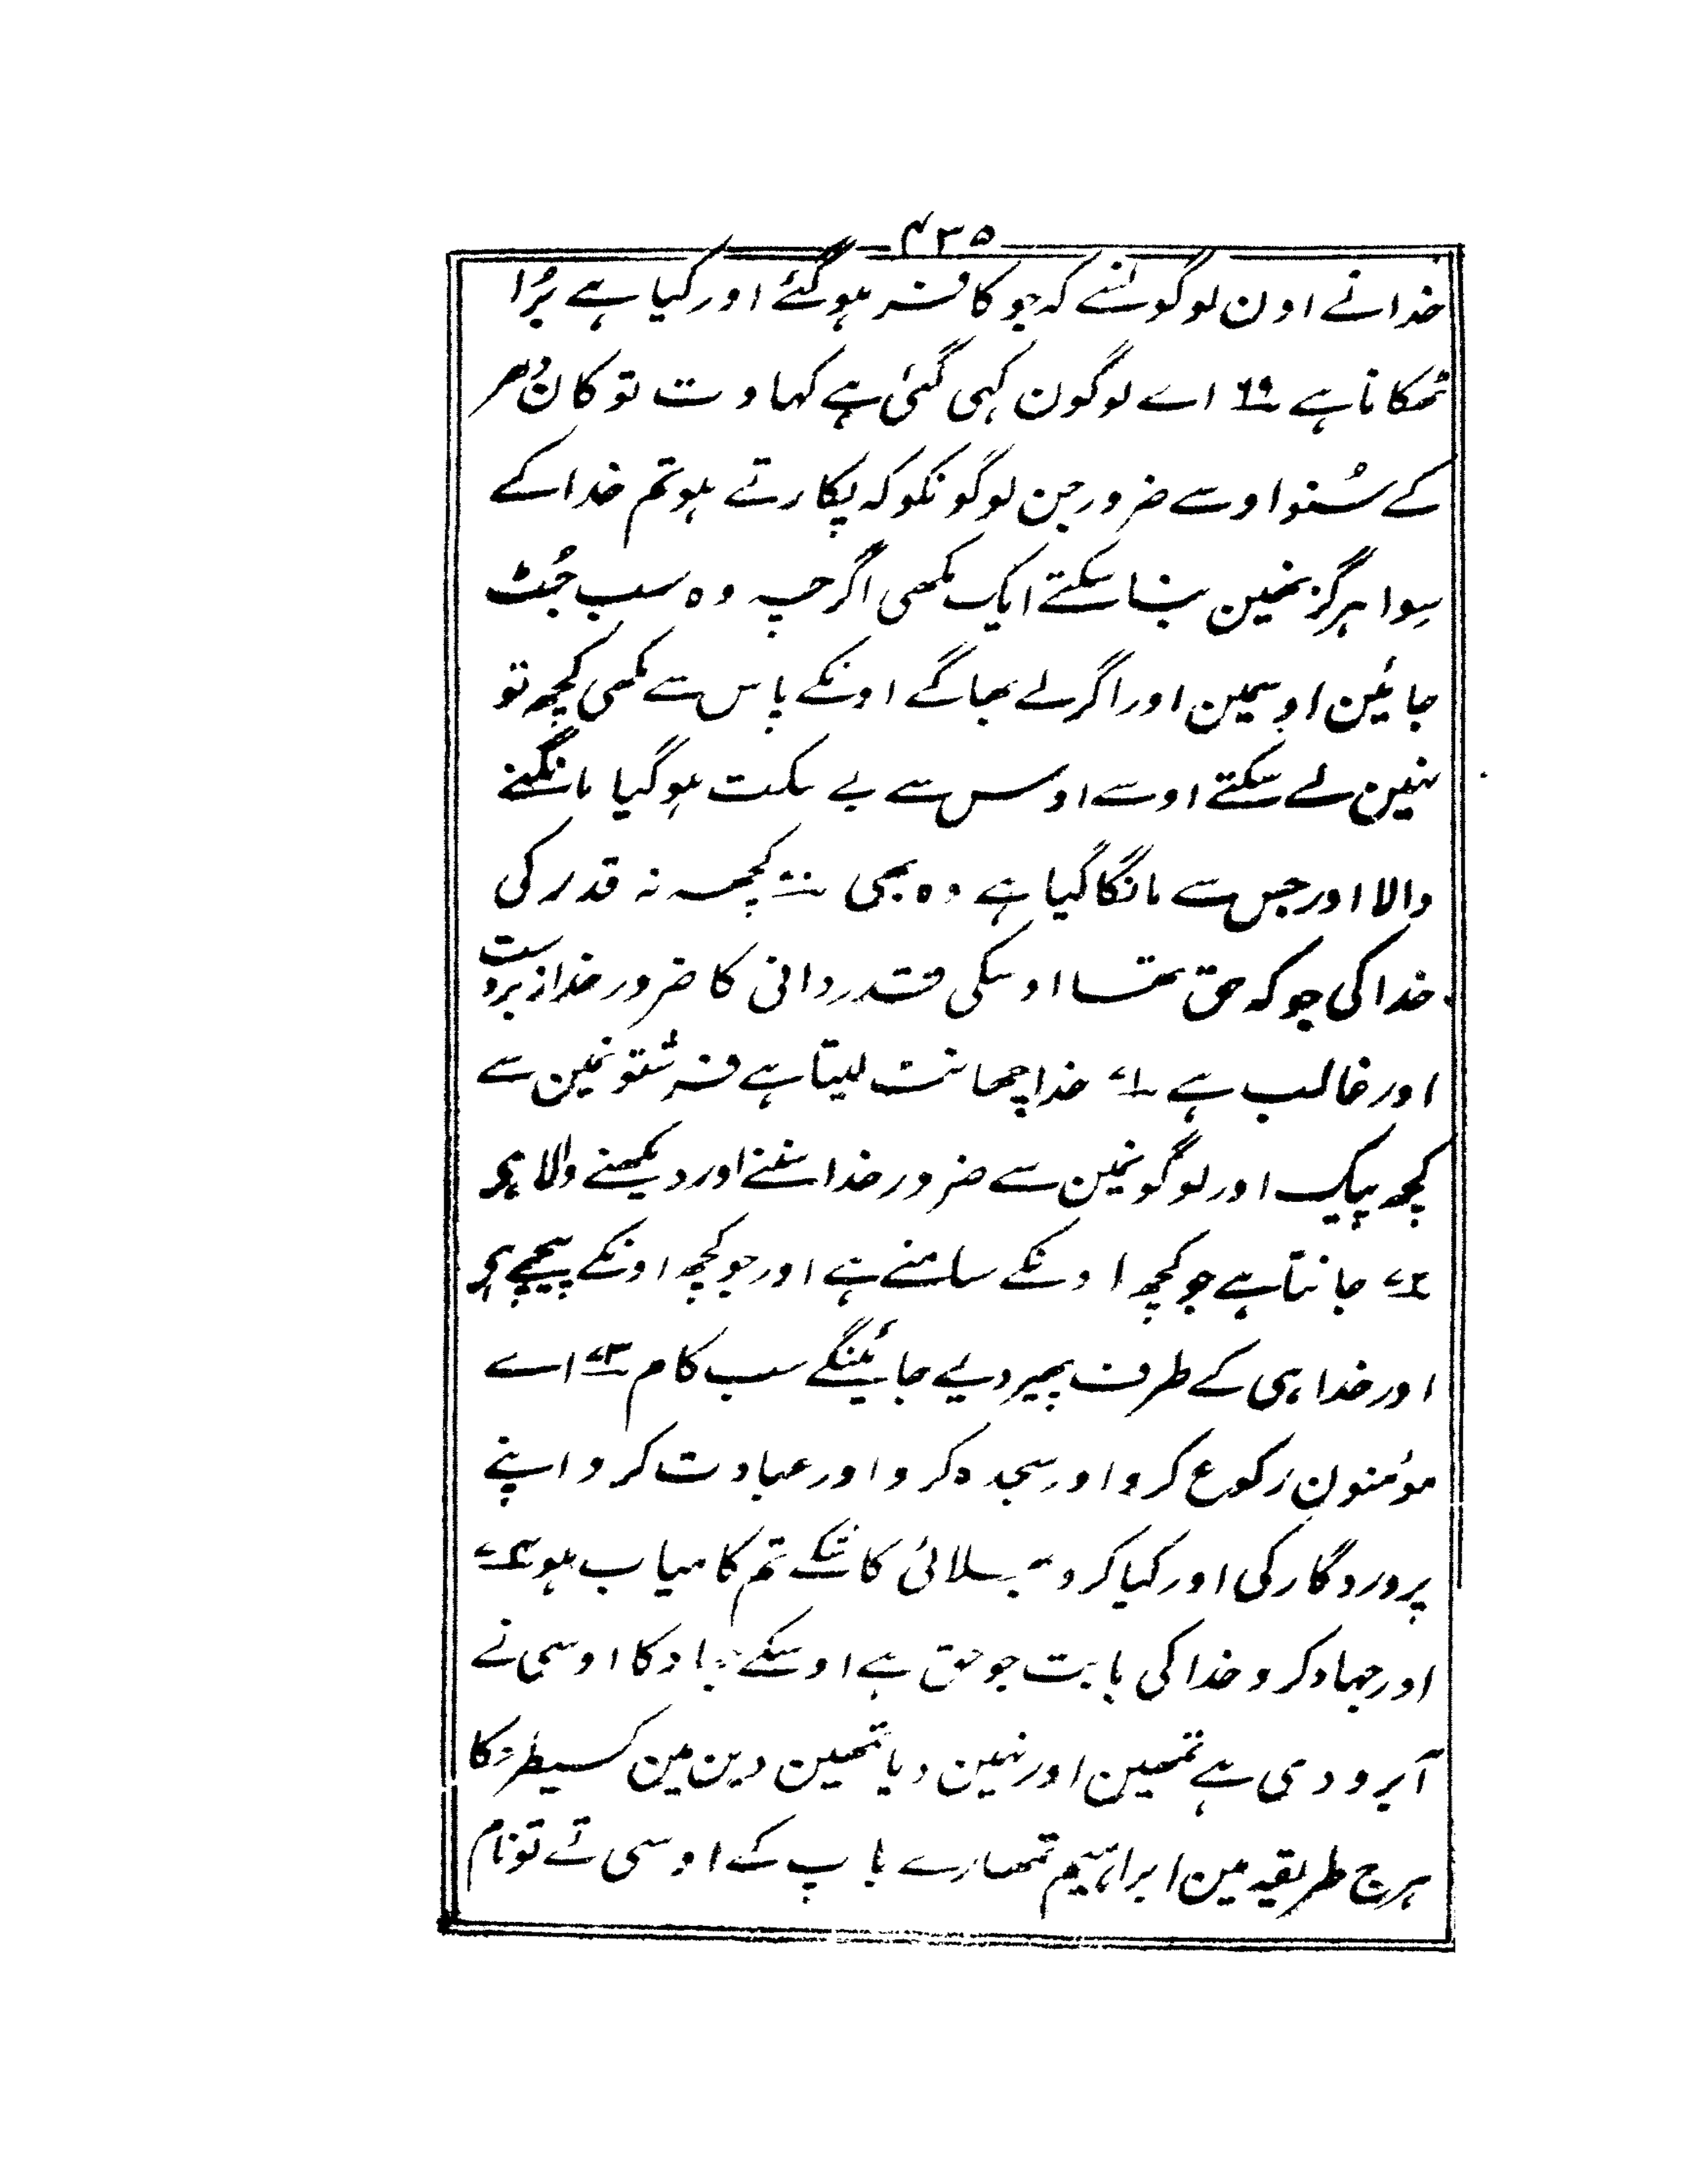 ۴۳۵
خدانے اون لوگونسے کہ جو کافر ہوگئے اور کیا ہے بُرا
ٹھکانا ہے ۶۹ اے لوگون کہی گئی ہے کہاوت تو کان دھر
کے سُنو اوسے ضرور جن لوگونکو کہ پکارتے ہو تم خدا کے
سِوا ہرگز نہین بنا سکتے ایک مکھی اگرچہ وہ سب جُٹ
جائین اوسمین اور اگر لے بھاگے اونکے پاس سے مکھی کچھ تو
نہین لے سکتے اوسے اوس سے بے سکت ہوگیا مانگنے
والا اور جس سے مانگا گیا ہے وہ بھی ۷۰ کچھہ نہ قدر کی
خدا کی جو کہ حق تھا اوسکی قدردانی کا ضرور خدا زبردست
اور غالب ہے ۷۱ خدا چھانٹ لیتا ہے فرشتونمین سے
کچھ پیک اور لوگونمین سے ضرور خدا سننے اور دیکھنے والا ہی
۷۲ جانتا ہے جو کچھ اونکے سامنے ہے اور جو کچھ اونکے پیچھے ہی
اور خدا ہی کے طرف پھیر دیے جائینگے سب کام ۷۳ اے
مؤمنون رکوع کرو اور سجدہ کرو اور عبادت کرو اپنے
پروردگار کی اور کیا کرو بھلائی کاشکے تم کامیاب ہو ۷۴
اور جہاد کرو خدا کی بابت جو حق ہے اوسکے جہاد کا اوسی نے
آبرو دی ہے تمھین اور نہین دیا تمھین دین مین کسیطرحکا
ہرج طریقہ مین ابراہیم تمھارے باپ کے اوسی نے تو نام